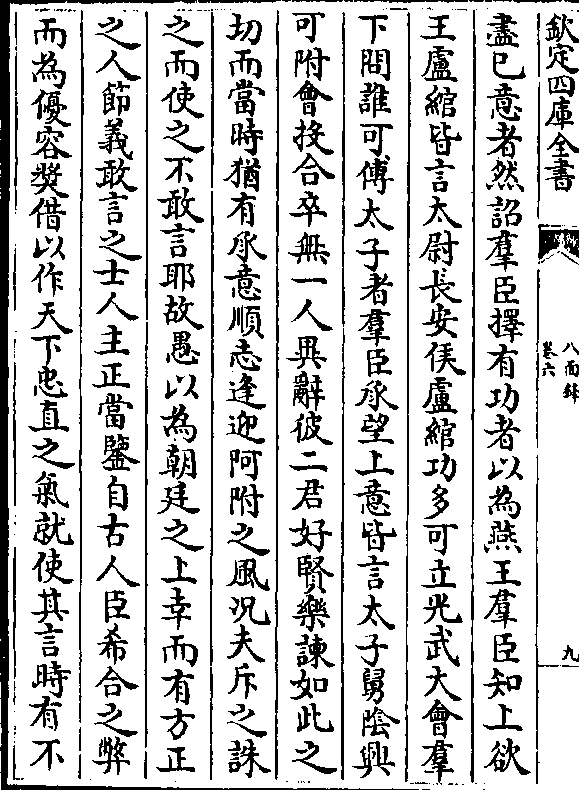 欽定四庫全書
八面鋒
卷六
九
盡已意者然詔羣臣擇有功者以為燕王羣臣知上欲
王盧綰皆言太尉長安侯盧綰功多可立光武大會羣
下問誰可傅太子者羣臣承望上意皆言太子舅陰興
可附會投合卒無一人異辭彼二君好賢樂諫如此之
切而當時猶有承意順志逢迎阿附之風况夫斥之誅
之而使之不敢言耶故愚以為朝廷之上幸而有方正
之人節義敢言之士人主正當鑒自古人臣希合之弊
而為優容奬借以作天下忠直之氣就使其言時有不